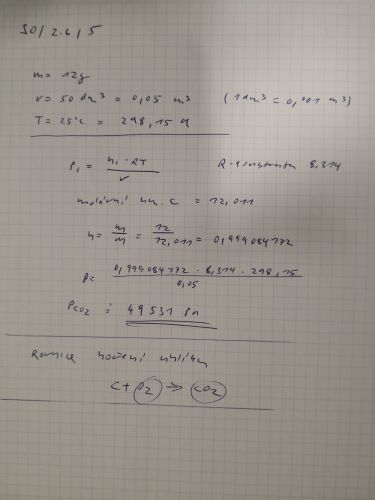 30/2.6/5
m = 12g
V = 50 dm³ = 0,05 m³ (1dm³ = 0,001 m³)
T = 25°C = 298,15 K
P₁ = n₁·RT / V R-konstanta 8,314
molární hm. C = 12,011
n = m/M = 12/12,011 = 0,999084172
p = 0,999084172 · 8,314 · 298,15 / 0,05
PCO₂ = 49531 Pa
Rovnice hoření uhlíku
C + O₂ → CO₂